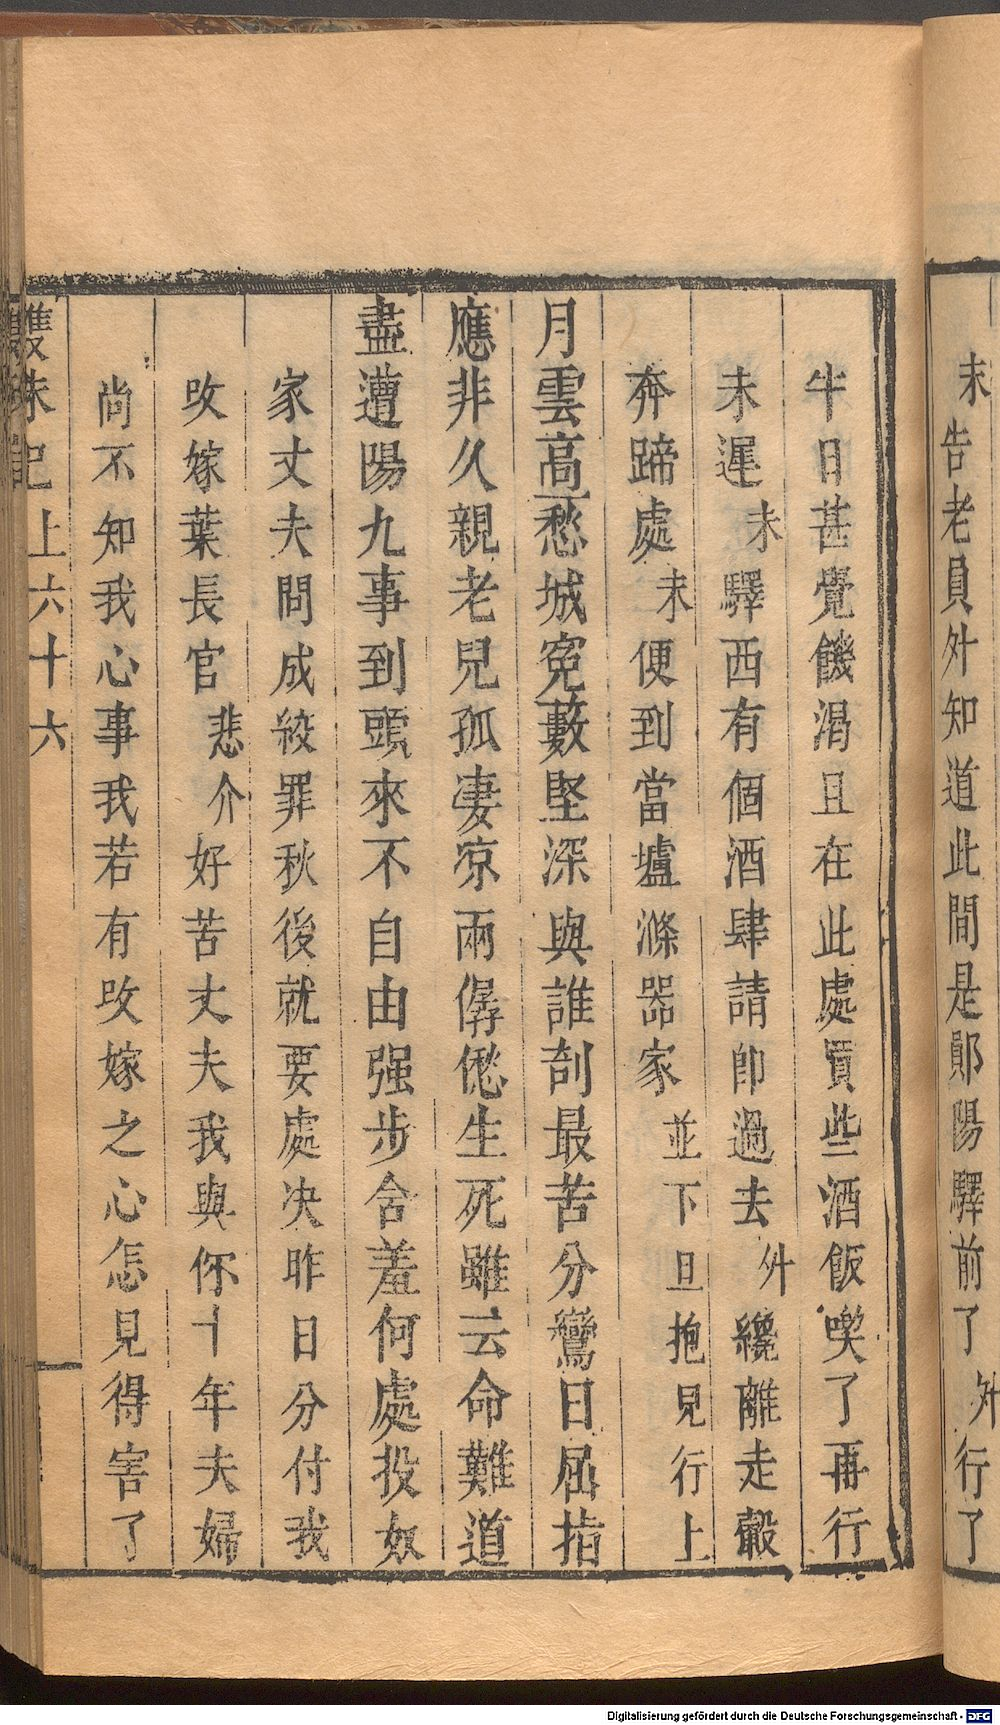 末告老員外知道此間是鄖陽驛前了外行了
半日甚覺饑渴且在此處買些酒飯喫了再行
未遲末驛西有個酒肆請卽過去外纔離走轂
奔蹄處末便到當壚滌器家並下旦抱兒行上
月雲高愁城寃藪堅深與誰剖最苦分鸞日屈指
應非久親老兒孤凄凉兩僝僽生死雖云命難道
盡遭陽九事到頭來不自由强步含羞何處投奴
家丈夫問成絞罪秋後就要處决昨日分付我
改嫁葉長官悲介好苦丈夫我與你十年夫婦
尚不知我心事我若有改嫁之心怎見得害了
雙珠記上六十六
Digitalisierung gefördert durch die Deutsche Forschungsgemeinschaft - DFG